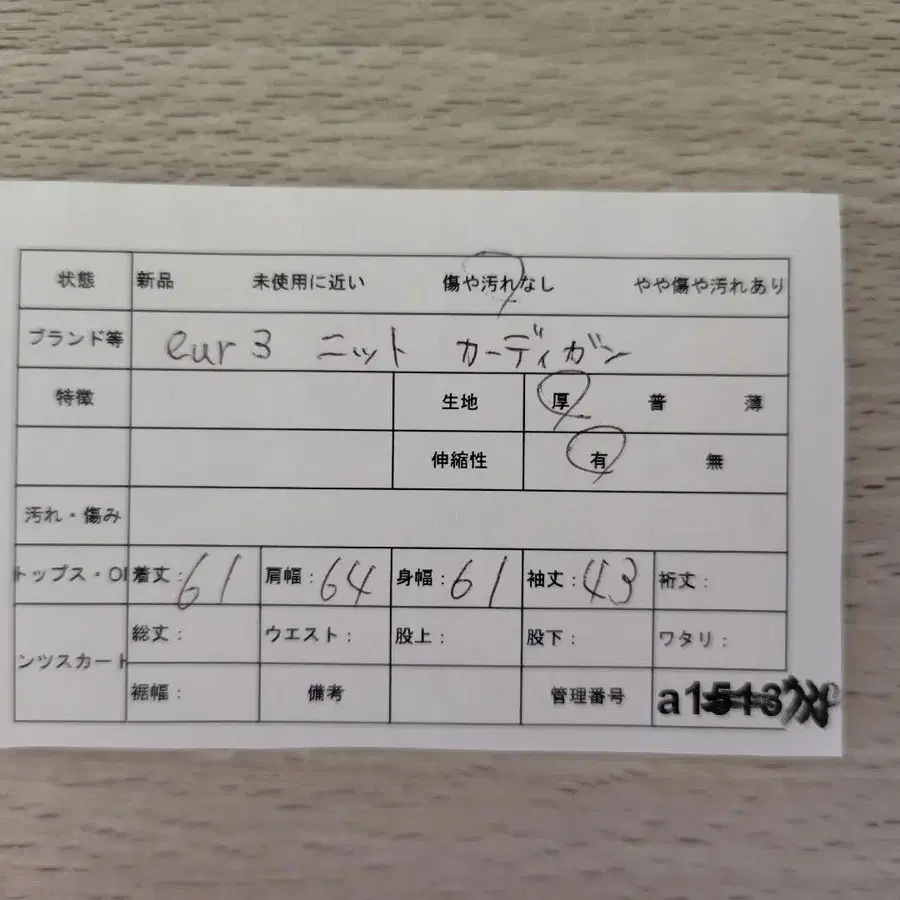 状態 新品 未使用に近い 傷や汚れなし やや傷や汚れあり
ブランド等 eur3 ニット カーディガン
特徴 生地 厚 普 薄
伸縮性 有 無
汚れ・傷み
トップス・OP 着丈:61 肩幅:64 身幅:61 袖丈:43 裄丈:
ンツスカート 総丈: ウエスト: 股上: 股下: ワタリ:
裾幅: 備考 管理番号 a1513